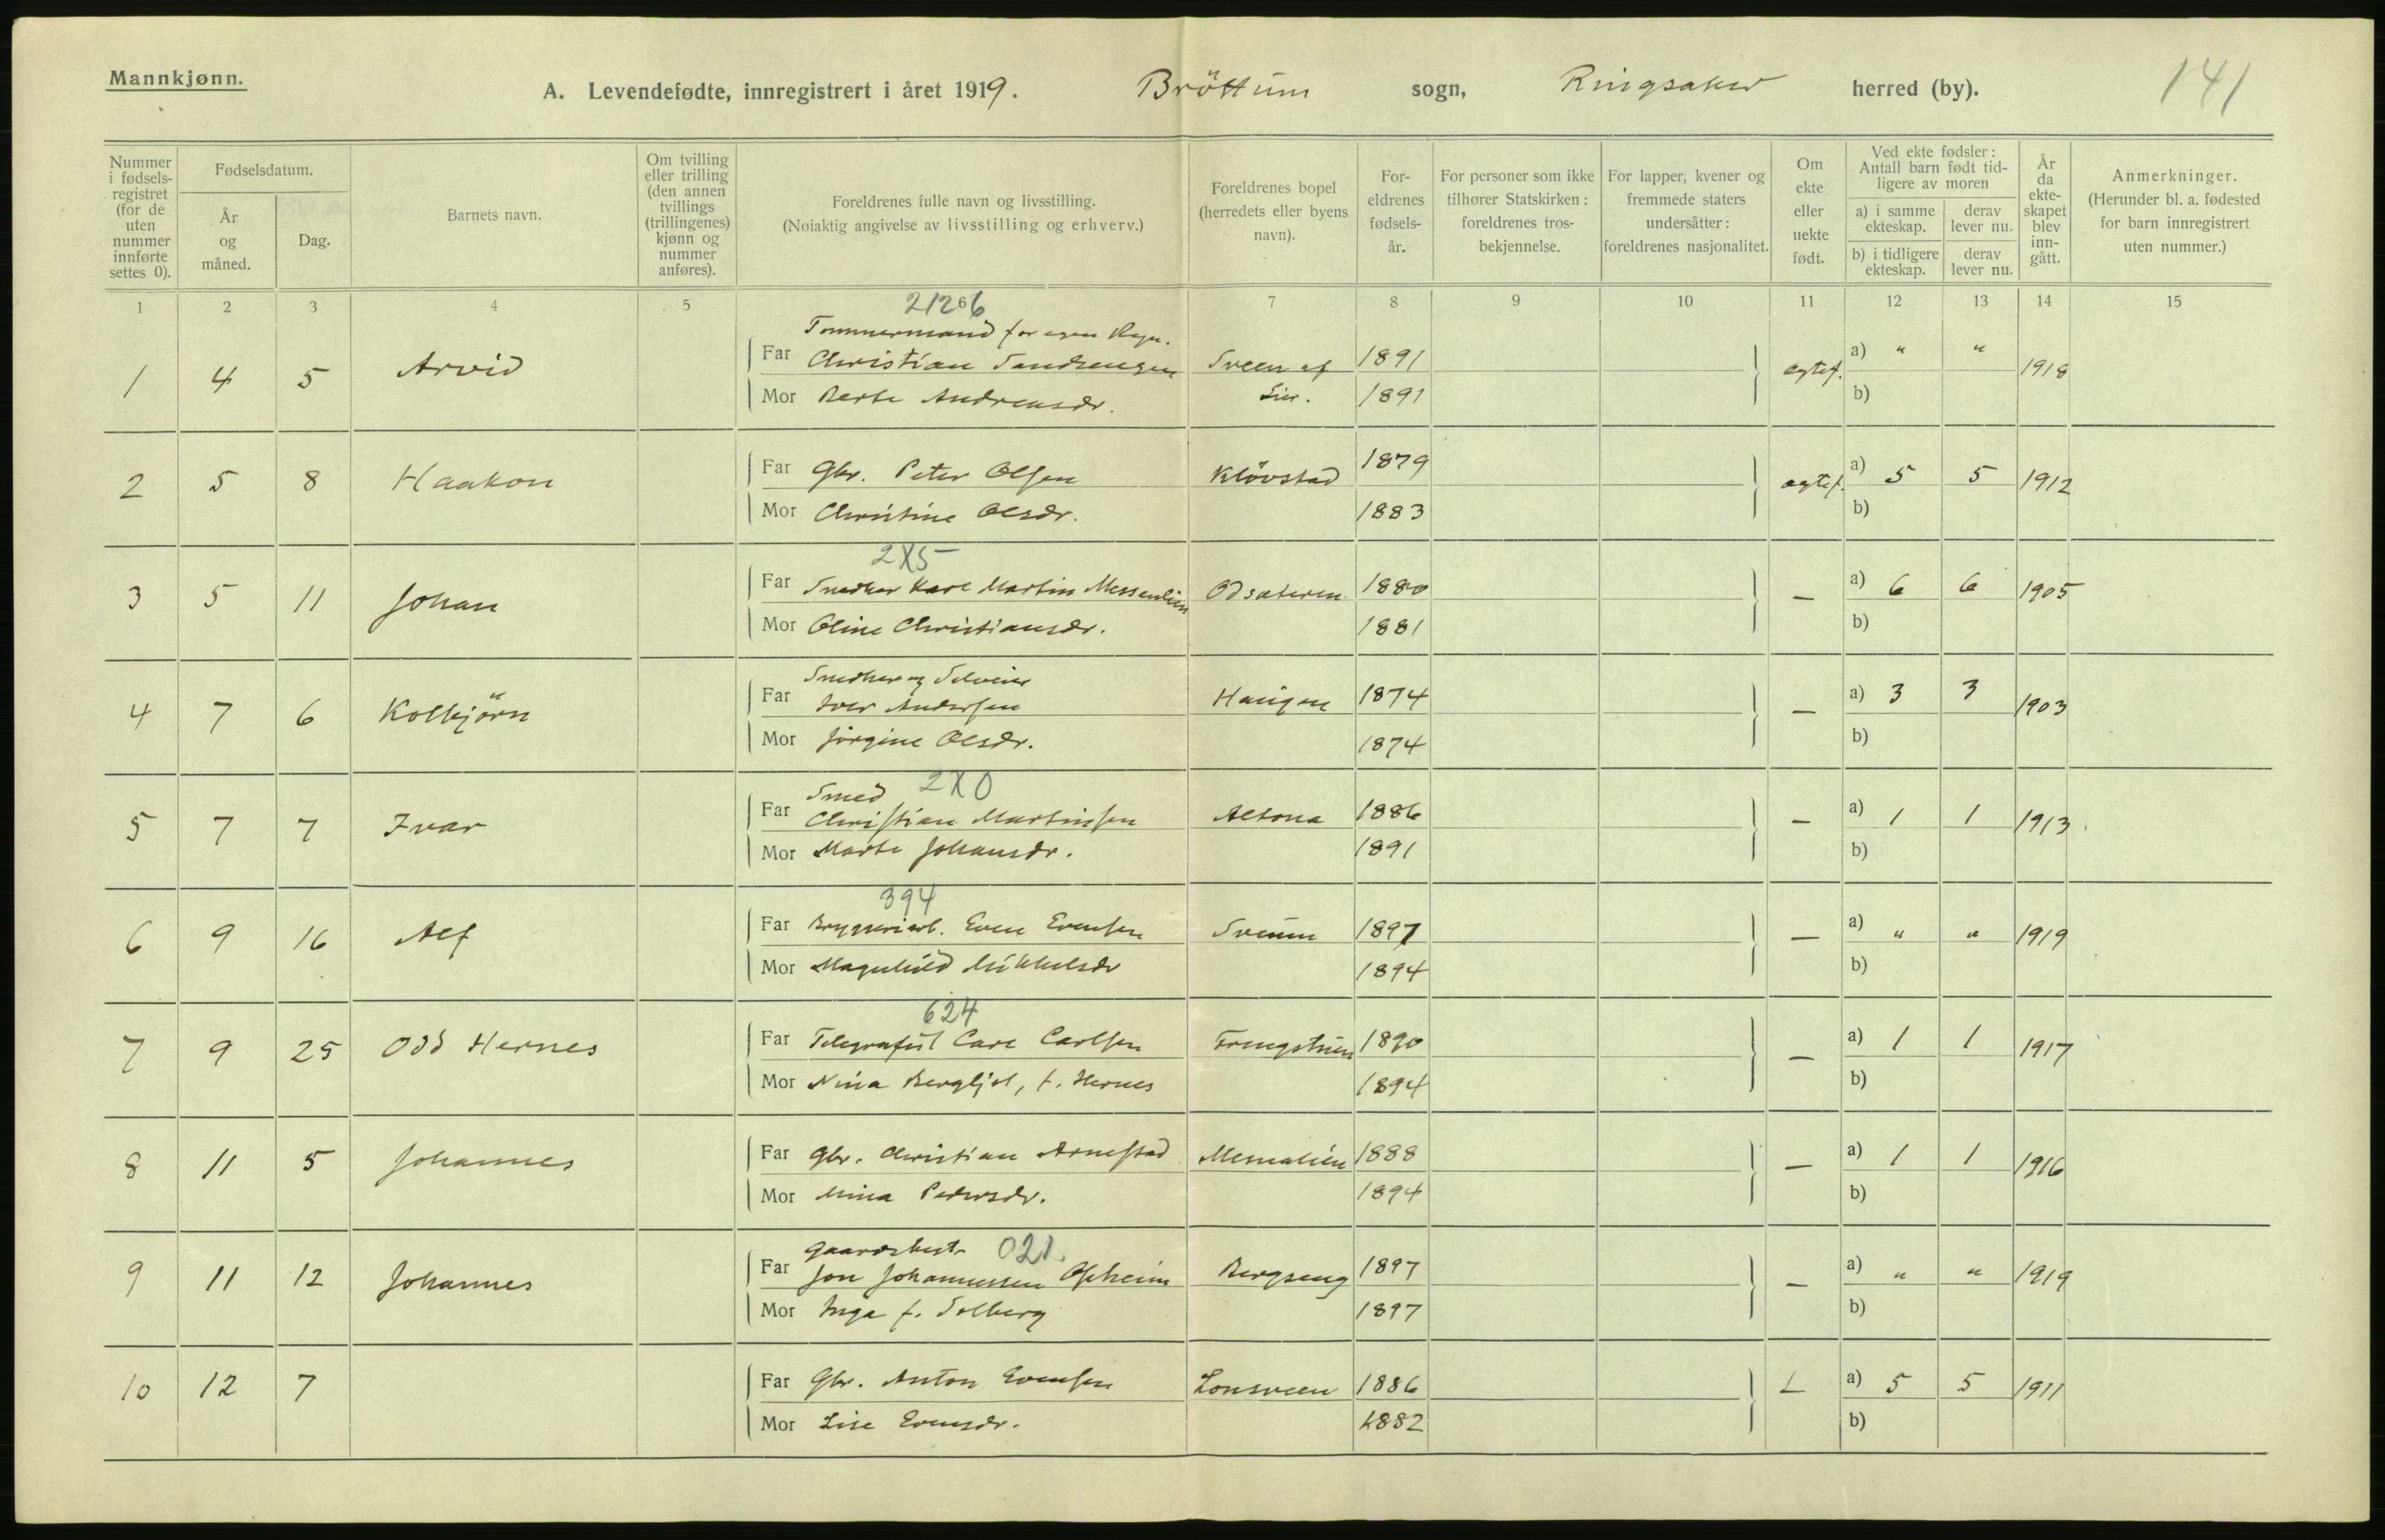 Mannkjønn.
A. Levendefødte, innregistrert i året 1919. Bröttum sogn, Ringsaker herred (by).
141
Nummer i fødselsregistret (for de uten nummer innførte settes 0).
Fødselsdatum.
År og måned.
Dag.
Barnets navn.
Om tvilling eller trilling (den annen tvillings (trillingenes) kjønn og nummer anføres).
Foreldrenes fulle navn og livsstilling.
(Nøiaktig angivelse av livsstilling og erhverv.)
Foreldrenes bopel (herredets eller byens navn).
Foreldrenes fødselsår.
For personer som ikke tilhører Statskirken: foreldrenes trosbekjennelse.
For lapper, kvener og fremmede staters undersåtter: foreldrenes nasjonalitet.
Om ekte eller uekte født.
Ved ekte fødsler: Antall barn født tidligere av moren
a) i samme ekteskap.
derav lever nu.
b) i tidligere ekteskap.
derav lever nu.
År da ekteskapet blev inngått.
Anmerkninger.
(Herunder bl. a. fødested for barn innregistrert uten nummer.)
1 2 3 4 5 6 7 8 9 10 11 12 13 14 15
2126
Tømmermand for egen Regn.
1 4 5 Arvid Far Christian Sandsengen Sveen af 1891 egtef. a) " " 1918
Mor Berte Andreasdr. Lier. 1891 b)
2 5 8 Haakon Far Gbr. Peter Olsen Klövstad 1879 egtef. a) 5 5 1912
Mor Christine Olsdr. 1883 b)
2X5
3 5 11 Johan Far Snedker Karl Martin Messenlien Odsæteren 1880 — a) 6 6 1905
Mor Oline Christiansdr. 1881 b)
Snedker og Selveier
4 7 6 Kolbjörn Far Iver Andersen Haugen 1874 — a) 3 3 1903
Mor Jörgine Olsdr. 1874 b)
Smed 2X0
5 7 7 Ivar Far Christian Martinsen Altona 1886 — a) 1 1 1913
Mor Marte Johansdr. 1891 b)
394
6 9 16 Alf Far Bryggeriarb. Even Evensen Sveum 1897 — a) " " 1919
Mor Magnhild Mikkelsdr 1894 b)
624
7 9 25 Odd Hernes Far Telegrafist Carl Carlsen 1890 — a) 1 1 1917
Mor Nina Bergljot, f. Hernes 1894 b)
8 11 5 Johannes Far Gbr. Christian Arnestad Mesnalien 1888 — a) 1 1 1916
Mor Mina Pedersdr. 1894 b)
Gaardsbest. 021
9 11 12 Johannes Far Jon Johannessen Opheim Bergseng 1897 — a) " " 1919
Mor Inga f. Solberg 1897 b)
10 12 7 Far Gbr. Anton Evensen Lonsveen 1886 a) 5 5 1911
Mor Lise Evensdr. 1882 b)